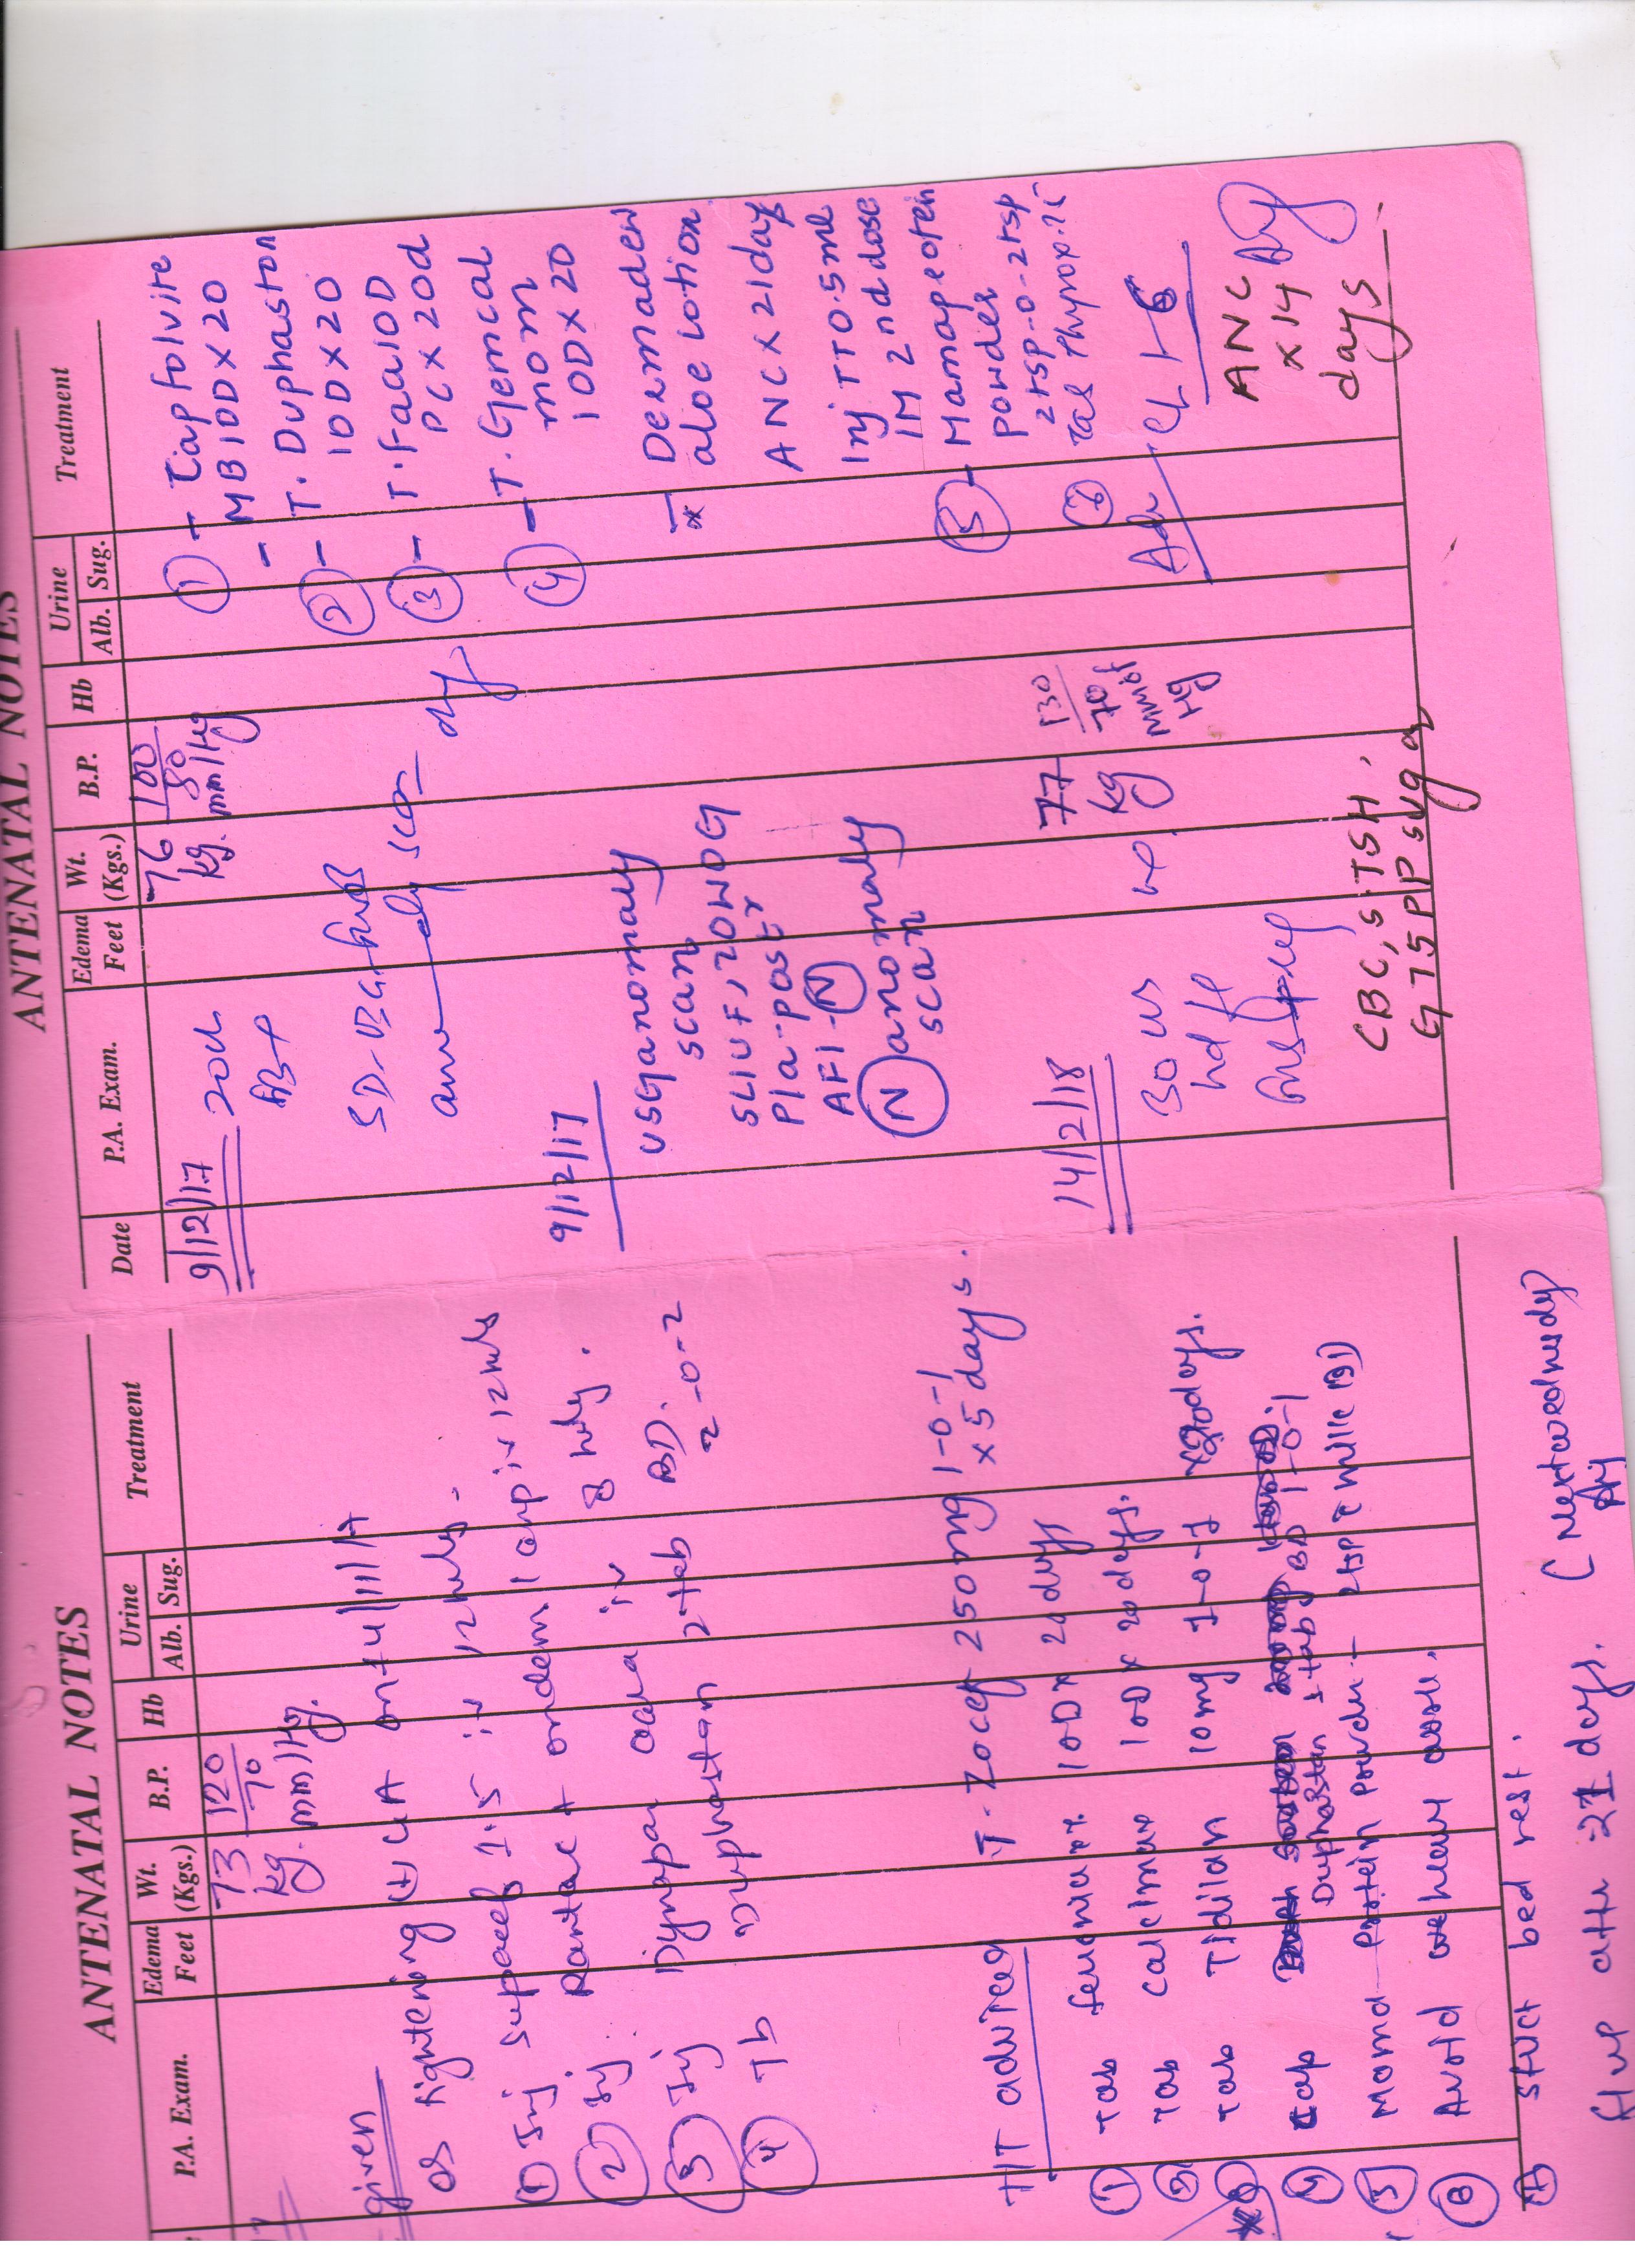 ANTENATAL NOTES
P.A. Exam.
Edema Feet
Wt. (Kgs.)
B.P.
Hb
Urine
Alb. Sug.
Treatment
73 kg.
120/70 mm/Hg.
given
OS tightening (+) GA on 14/11/17
① Inj supacef 1.5 iv 12 hrly.
② Inj Rantac + ondem 1 amp iv 12 hrly
③ Inj Dynapar aqua iv 8 hrly.
④ Tb Duphastan 2 tab BD. 2-0-2
T/T advices
T. Zocef 250 mg 1-0-1
x 5 days.
① Tab 1 OD x 20 days
② Tab calcimax 1 OD x 20 days.
Tab Tidilan 10 mg 1-0-1 x 20 days.
④ Cap
Duphastan 1 tab BD 1-0-1
⑤ Moma protein powder - 2tsp c milk BD
⑥ Avoid heavy work.
strict bed rest.
f/up after 21 days. (Next wednesday)
ANTENATAL NOTES
Date
P.A. Exam.
Edema Feet
Wt. (Kgs.)
B.P.
Hb
Urine
Alb. Sug.
Treatment
9/12/17
20
76 kg.
100/80 mm/Hg
anomaly scan
① - Cap folvite
- MB 1OD X 20
② - T. Duphaston
1OD X 20
③ - T. Faa 1OD
PC X 20d
④ - T. Gemcal
mom
1OD X 20
9/12/17
USG anomaly
scan
SLIUF, 20WOG
Pla-post r
AFI - Ⓝ
Ⓝ anomaly
scan
* Dermadew
aloe lotion
ANC X 21 days
Inj TT 0.5 ml
IM 2nd dose
⑤ - Mamaprotein
powder
2tsp-0-2tsp
14/2/18
30
77 kg
130/70 mm of Hg
⑥ Tab Thyrox
Adv
CBC, S. TSH,
G 75 PP suga
ANC
x 14
days